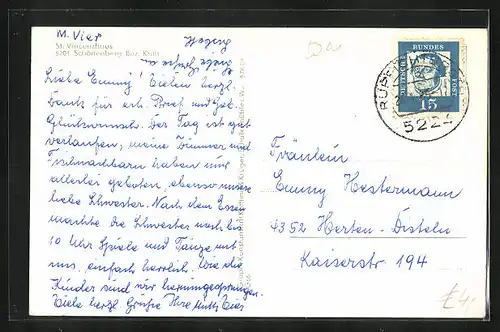 M. Vier
St. Vincenzhaus
5201 Schönenberg Bez. Köln
Liebe Emmy! Vielen herzl.
Dank für erh. Brief und Geb.
Glückwunsch. Der Tag ist gut
verlaufen, meine Zimmer und
Tischnachbarn haben mir
allerlei geboten, ebenso unsere
liebe Schwester. Nach dem Essen
machte die Schwester noch bis
10 Uhr Spiele und Tänze mit
uns, einfach herrlich. Wie die
Kinder sind wir herumgesprungen.
Viele herzl. Grüße Ihre
DEUTSCHE BUNDESPOST
15
5221
Fräulein
Emmy Hestermann
4352 Herten-Disteln
Kaiserstr 194